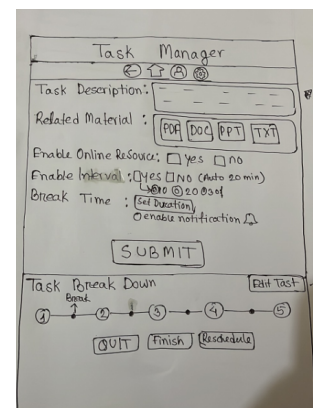 Task Manager
Task Description:
Related Material : PDF DOC PPT TXT
Enable Online Resource: yes no
Enable Interval : yes NO (Auto 20 min)
10 20 30
Break Time : Set Duration
enable notification
SUBMIT
Task Break Down Edit Task
Break
1 2 3 4 5
QUIT Finish Reschedule